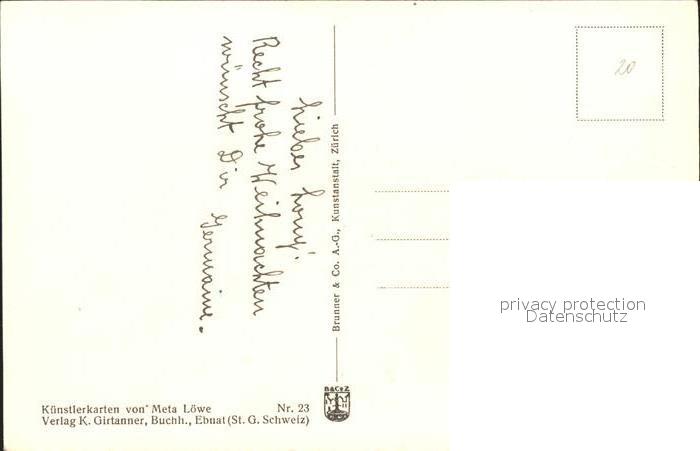 Lieber Louy!
Recht frohe Weihnachten
wünscht Dir
Germaine.
Brunner & Co. A.-G., Kunstanstalt, Zürich
20
privacy protection
Datenschutz
B&CoZ
Künstlerkarten von Meta Löwe Nr. 23
Verlag K. Girtanner, Buchh., Ebnat (St. G. Schweiz)